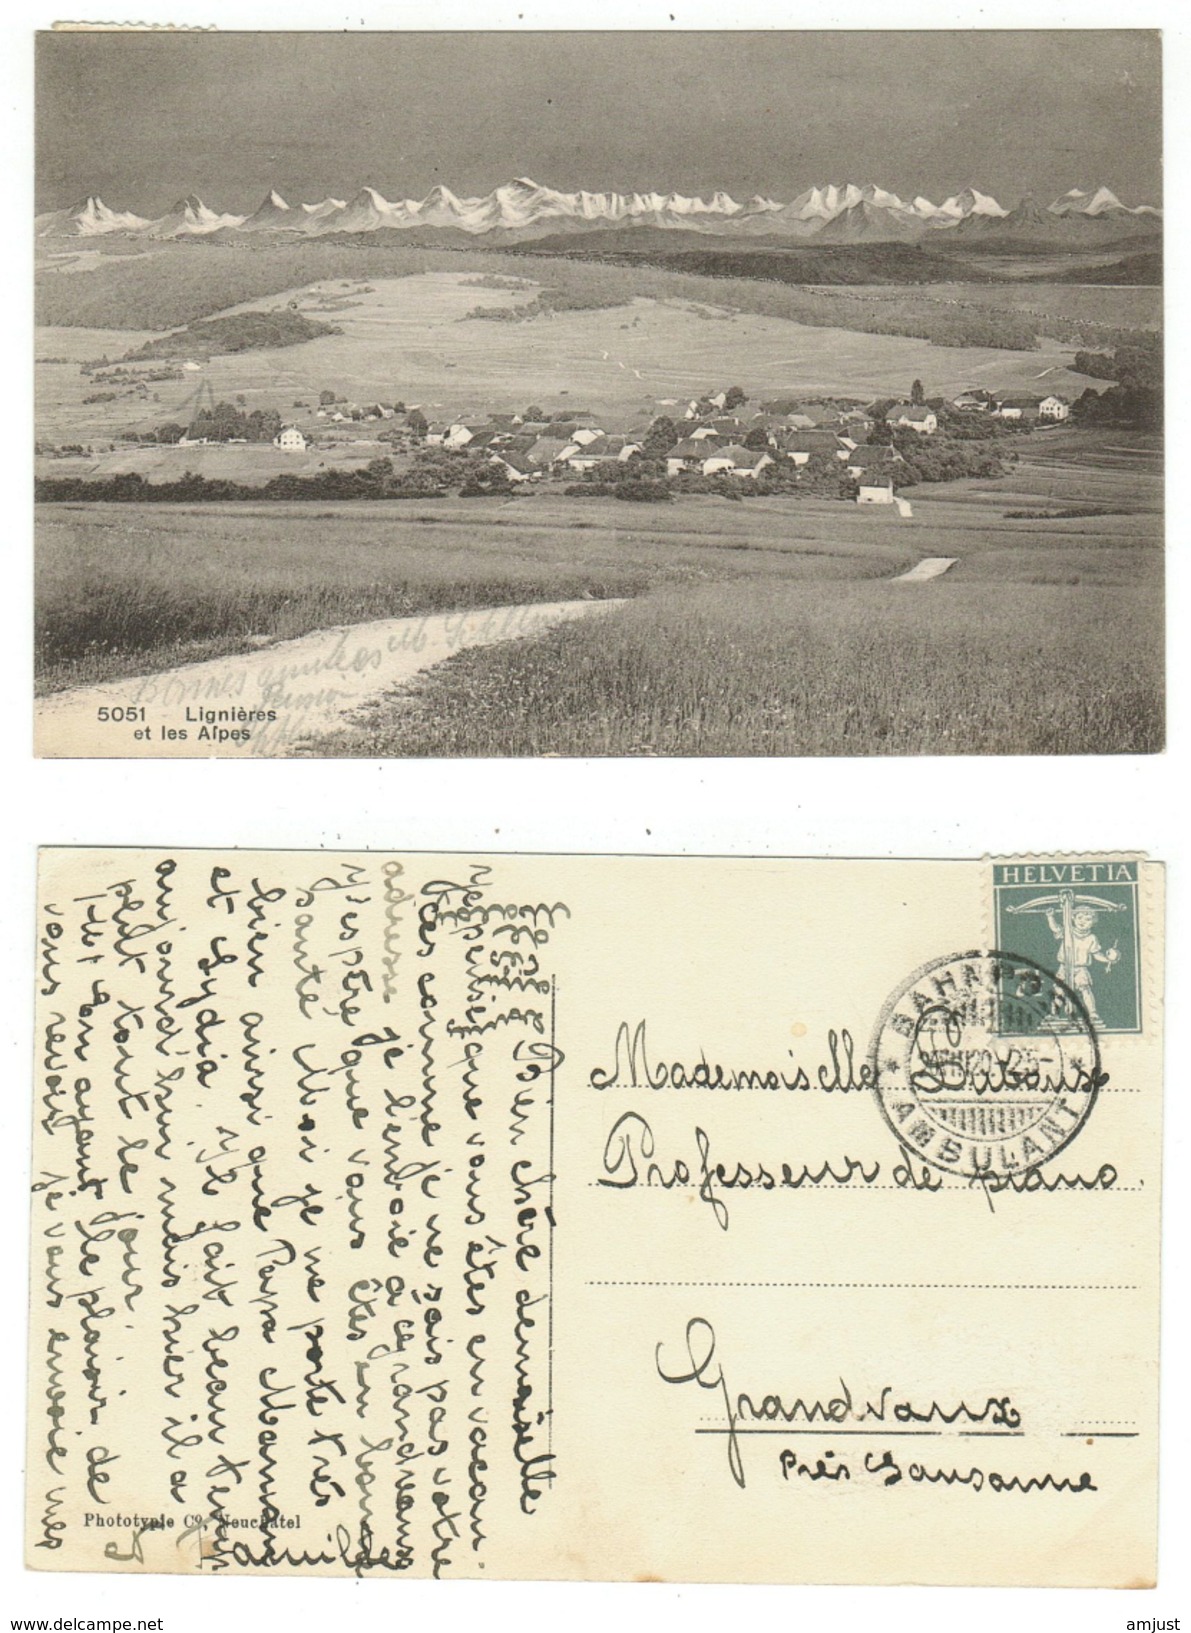 Bonnes amitiés
5051 Lignières
et les Alpes
HELVETIA
BAHNPOST
AMBULANT
Mademoiselle Duboux
Professeur de piano.
Grandvaux
Près Lausanne
Bien chère demoiselle
Je pense que vous êtes en vacan-
ces comme je ne sais pas votre
adresse je l'envoie à Grandvaux
j'espère que vous êtes en bonne
santé Moi je ne porte très
bien ainsi que Papa Maman
et Lydia. Il fait beau temps
aujourd'hui mais hier il a
plut tout le jour.
En ayant le plaisir de
vous revoir je vous envoie mes
Phototypie Co, Neuchâtel
amjust
delcampe.net